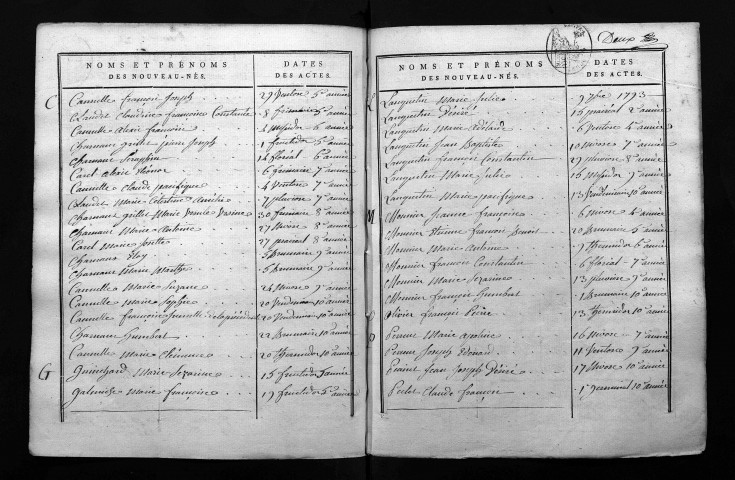 NOMS ET PRÉNOMS
DES NOUVEAU-NÉS.
DATES
DES ACTES.
C
Cannelle françois Joseph 29 Ventose 5e année
Claudet Claudine françoise Constante 8 frimaire 5e année
Cannelle Alexis françois 2 Messidor 6 année
Charnaux grillet pierre Joseph 1 fructidor 5 année
Charnaux Seraphin 14 floréal 6e année
Caret alexis 6 frimaire 7 année
Cannelle claude pacifique 4 Ventose 7e année
Claudet Marie Celestine Amélie 7 pluviose 7e année
Charnaux grillet Marie 30 frimaire 8 année
Charnaux Marie Antoine 27 Nivose 8e année
Caret Marie Josette 27 prairial 8 année
Charnaux Eloy 5 Brumaire 9e année
Charnaux Marie Marthe 5 Brumaire 9e année
Cannelle Marie Suzane 24 Nivose 9e année
Cannelle Marie Sophie 20 Vendemiaire 10e année
Cannelle françoise 20 Vendemiaire 10e année
Charnaux Humbert 22 Brumaire 10e année
Cannelle Marie Clemence 20 Thermidor 10e année
G
Guinchard Marie Sezarine 15 fructidor année
Galmiche Marie françoise 19 fructidor 5e année
Deux
NOMS ET PRÉNOMS
DES NOUVEAU-NÉS.
DATES
DES ACTES.
L
Languetin Marie Julie 9 7bre 1793
Languetin Désiré 16 prairial 2e année
Languetin Marie 6 Ventose 4e année
Languetin Jean Baptiste 10 Nivose 7e année
Languetin francois Constantin 29 Nivose 8e année
Languetin Marie Julie 16 Messidor 9e année
Languetin Marie pacifique 13 Vendemiaire 10e année
M
Monnier Jeanne françoise 6 Nivose 4e année
Monnier Etienne francois Benoit 20 Brumaire 5 année
Monnier Marie Antoine 9 Thermidor 6 année
Monnier francois Constantin 6 floréal 7e année
Monnier Marie Sezarine 13 pluviose 9e année
Monnier françois Humbert 1 Brumaire 10 année
O
Olivier françois 13 Thermidor 10 année
Marie 16 Nivose 7e année
Joseph Edouard 11 Ventose 9e année
Jean Joseph Désiré 17 Nivose 10 année
Claude françois 1 Germinal 10e année